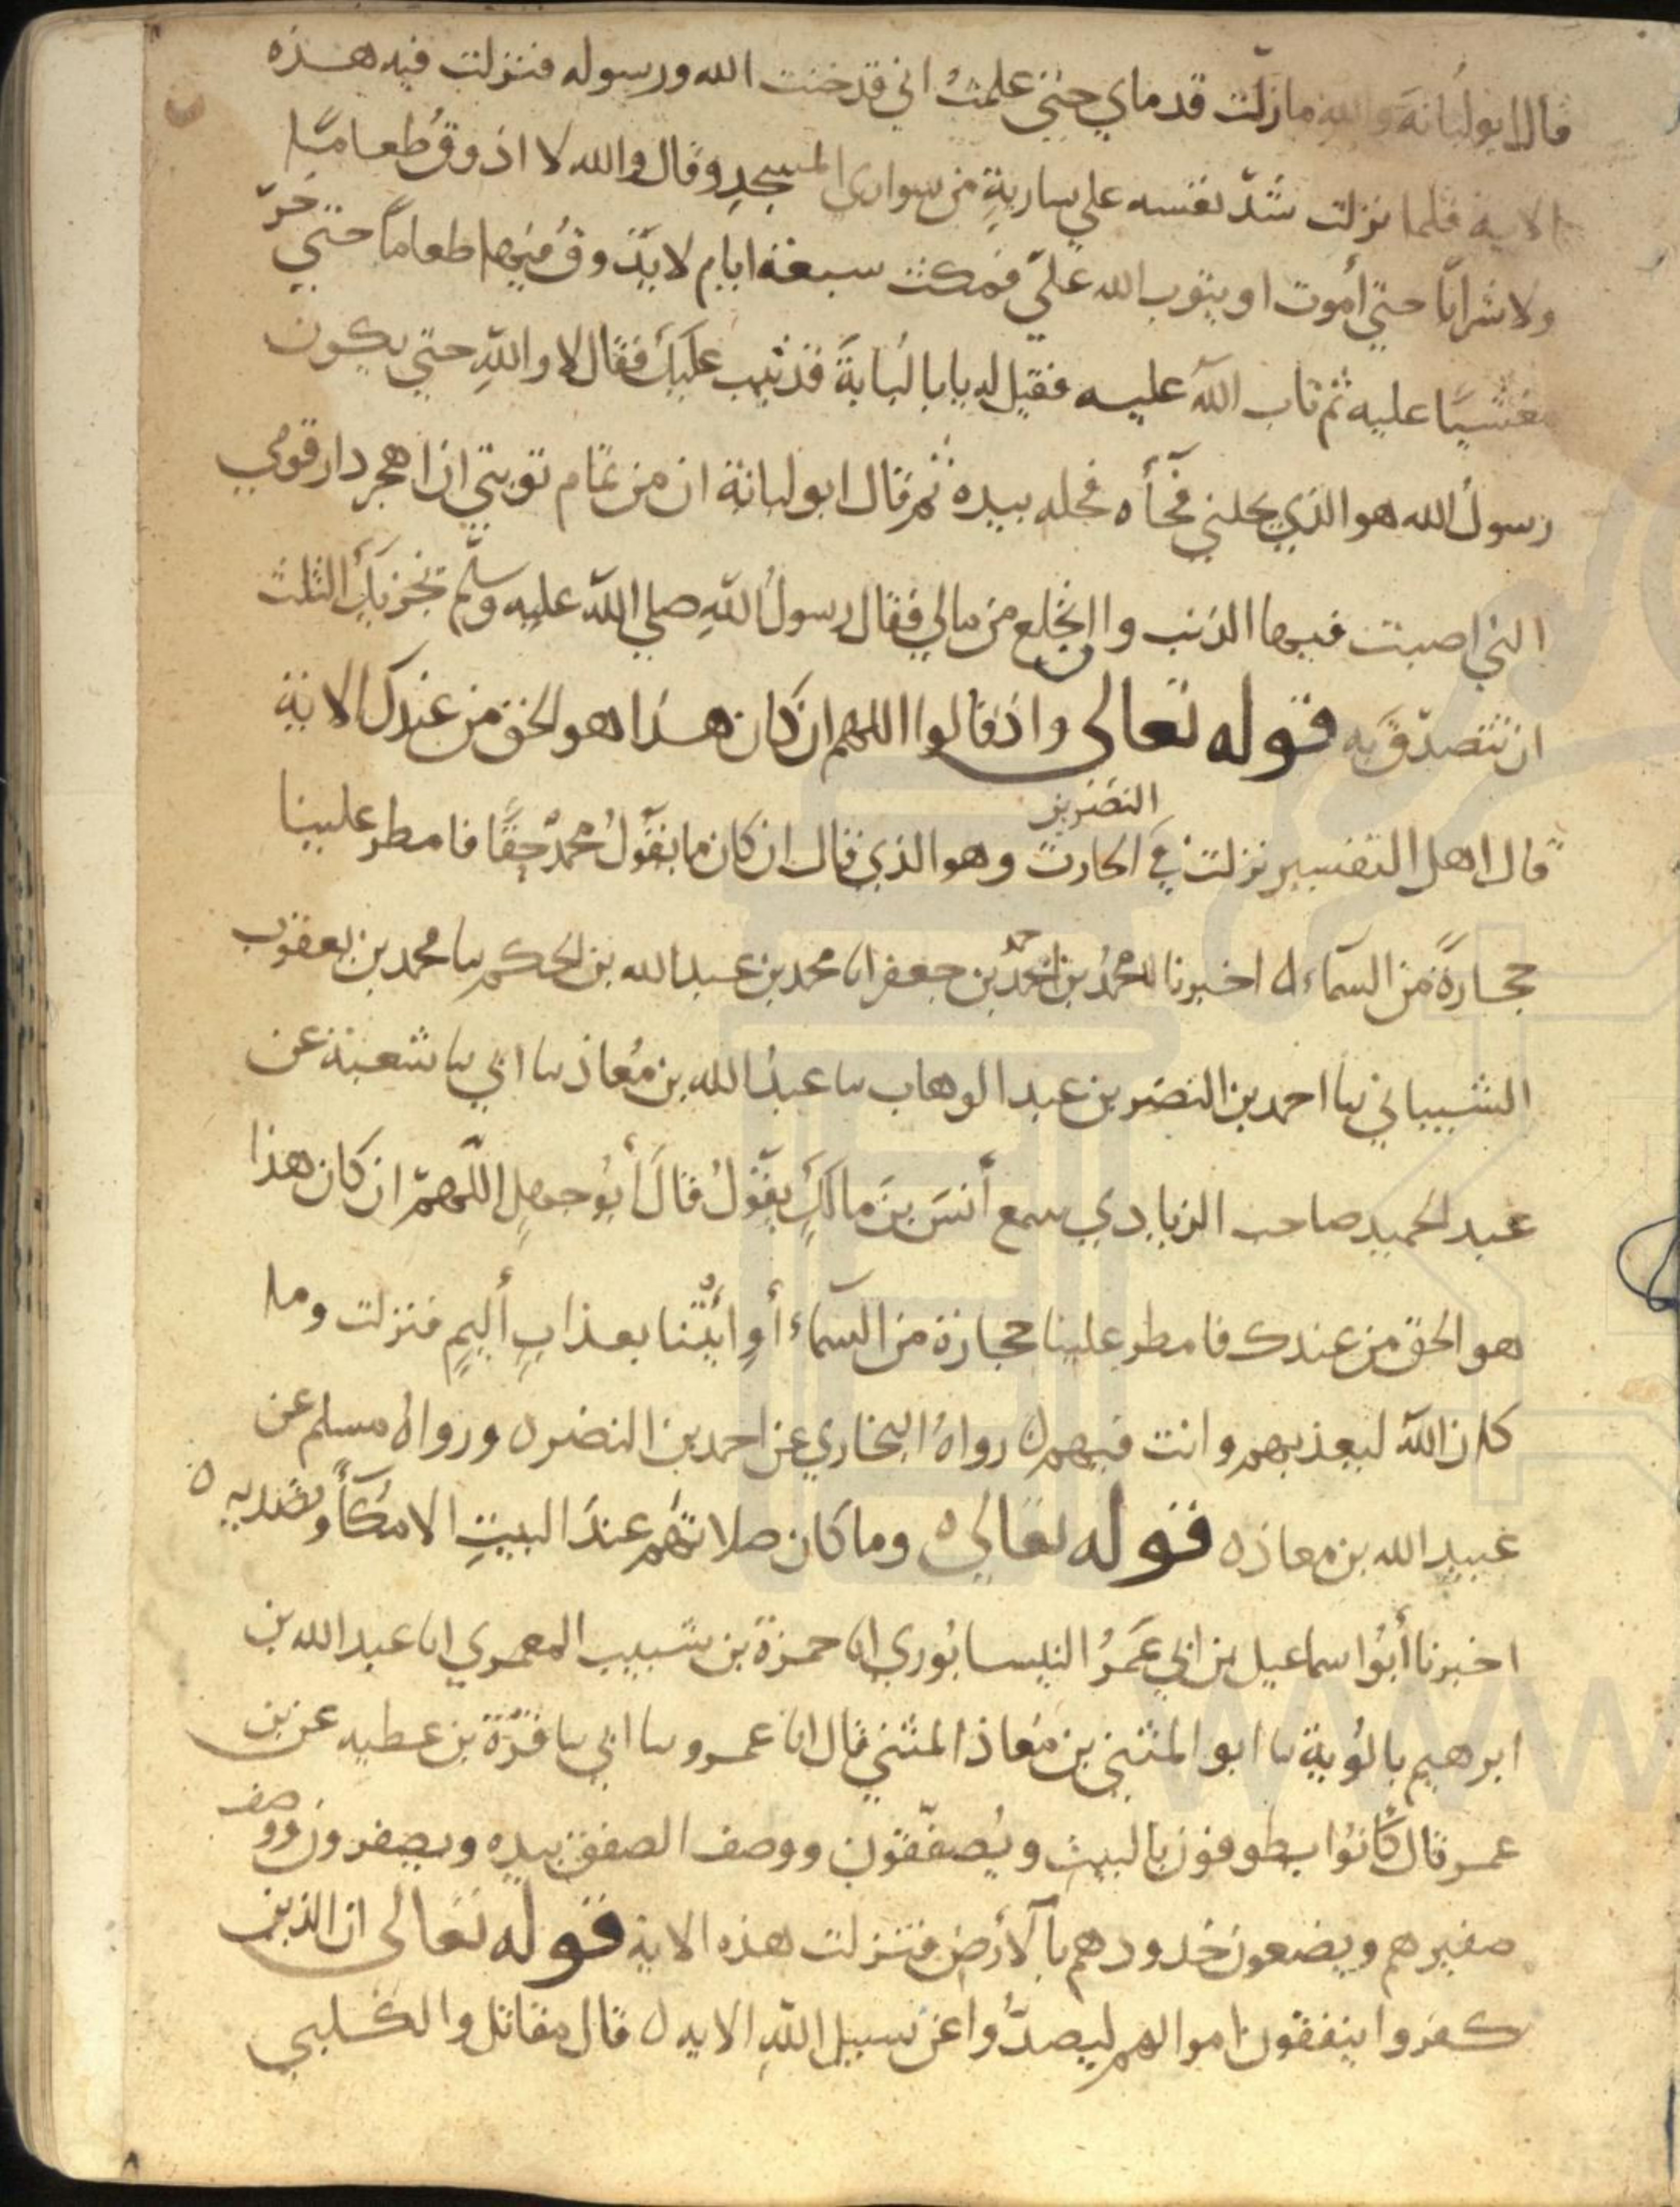 قال ابو لبانة والله مازلّت قدماي حتى علمتُ اني قد خنت الله ورسوله فنزلت فيه هذه
الاية فلما نزلت شدّ نفسه على ساريةٍ من سواري المسجدِ وقال والله لا اذوقُ طعامًا
ولا شرابًا حتى أموت او يتوب الله عليّ فمكث سبعة ايام لا يذوق فيها طعاماً حتى خرّ
مغشيًا عليه ثم تاب الله عليه فقيل له يابا لبابةَ قد تيب عليكَ فقال لا واللهِ حتى يكون
رسولُ الله هو الذي يحلني فجآأه فحله بيده ثم قال ابو لبانة ان من تمام توبتي ان اهجر دار قومي
التي اصبت فيها الذنب وان انخلع من مالي فقال رسولُ اللهِ صلي الله عليه وسلّم تجزيكَ الثلث
ان تتصدّق به قوله تعالى واذ قالوا اللهم ان كان هذا هو الحق من عندك الاية
قال اهل التفسير نزلت في النضر بن الحارث وهو الذي قال ان كان ما يقولُ محمدٌ حقًا فامطر علينا
حجارةً من السمآء ه اخبرنا محمدُ بن احمدَ بن جعفر انا محمد بن عبد الله بن الحكم نا محمد بن يعقوب
الشيباني نا احمد بن النضر بن عبد الوهاب نا عبيدُ الله بن مُعاذ نا ابي نا شعبة عن
عبد الحميد صاحب الزيادي سمع أنسَ بنَ مالكٍ يقولُ قالَ أبُو جهلٍ اللّهمّ ان كان هذا
هو الحق من عندك فامطر علينا حجارة من السمآء أوِ ائتنا بعذابٍ أليمٍ فنزلت وما
كان اللهُ ليعذبهم وانت فيهم ه رواهُ البخاري عن احمد بن النضر ه ورواهُ مسلم عن
عبيد الله بن معاذ ه قوله تعالى ه وما كان صلاتهُم عندَ البيتِ الا مكآأً وتصديه ه
اخبرنا أبُوا سماعيل بن ابي عَمرُ النيسابُوري انا حمزة بن شبيب المعمري انا عبد الله بن
ابرهيم بالُوية نا ابو المثنى بن مُعاذ المثني قال انا عمرو نا ابي نا قرّة بن عطيه عن بن
عمر قال كَانُوا يطوفون بالبيت ويُصفّقون ووصف الصفق بيده ويصفرون ووصف
صفيرهم ويضعون خدودهم بالأرض فنزلت هذه الاية قوله تعالى ان الذين
كفروا ينفقون اموالهم ليصدُّوا عن سبيل اللهِ الايه ه قال مقاتل والكلبي